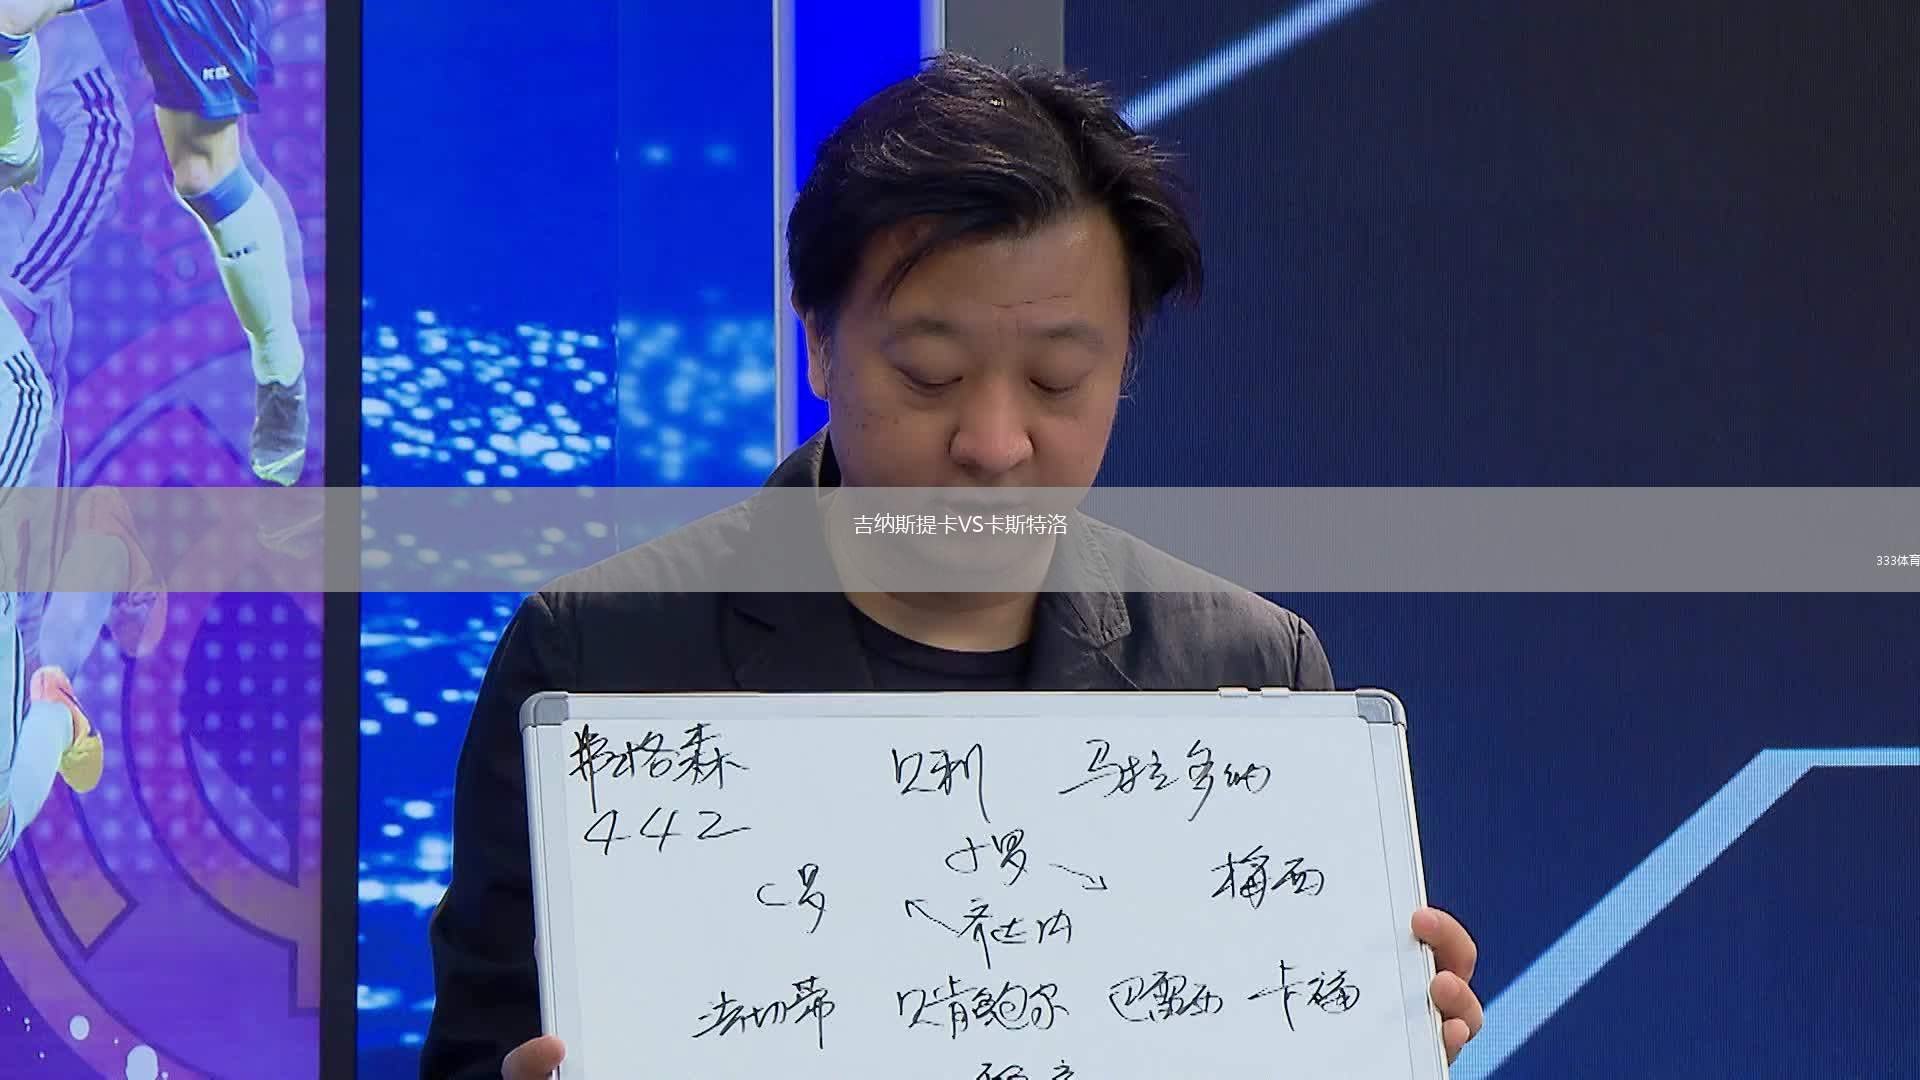 KEL
吉纳斯提卡VS卡斯特洛
333体育
弗格森 贝利 马拉多纳
442
小罗
C罗 梅西
齐达内
法切蒂 贝肯鲍尔 巴雷西 卡福